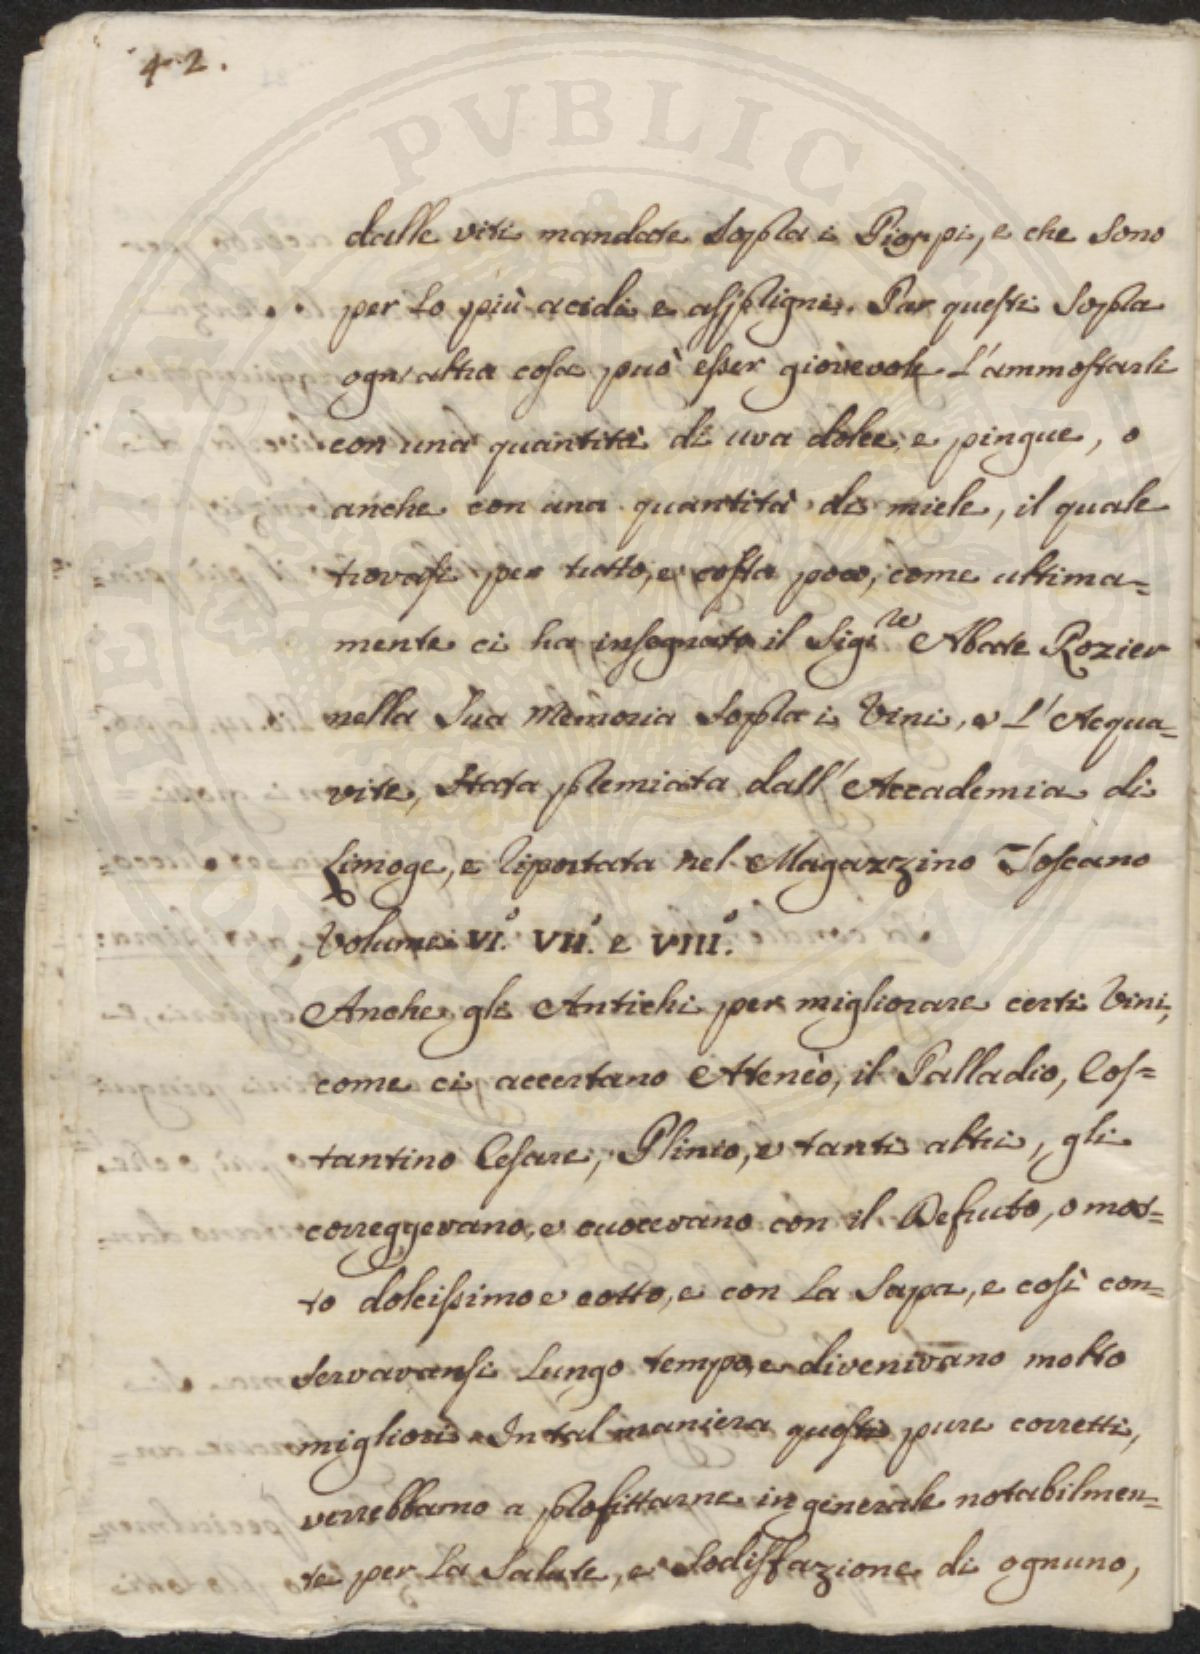 42.
dalle viti mandate sopra i Pioppi, e che sono
per lo più acidi e asprigni. Per questi sopra
ogn'altra cosa può esser giovevole l'ammostarli
con una quantità di uva dolce, e pingue, o
anche con una quantità di miele, il quale
trovasi per tutto, e costa poco, come ultima=
mente ci ha insegnato il Sig.re Abate Rozier
nella sua Memoria sopra i Vini, e l'Acqua=
vite, stata premiata dall'Accademia di
Limoge, e riportata nel Magazzino Toscano
Volume VI.° VII.° e VIII.°
Anche gli Antichi per migliorare certi Vini,
come ci accertano Atenèo, il Palladio, Cos=
tantino Cesare, Plinio, e tanti altri, gli
correggevano, e cuocevano con il Defruto, o mos=
to dolcissimo e cotto, e con la Sapa, e così con=
servavansi lungo tempo, e divenivano molto
migliori. In tal maniera questi pure corretti,
verrebbamo a profittarne in generale notabilmen=
te per la Salute, e Sodisfazione di ognuno,